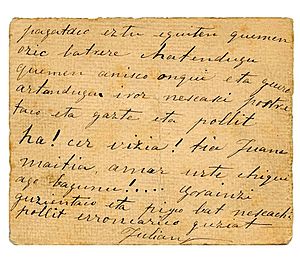 pagataco eztu eguiten guemen
oric batrere
guemen anisco ongui eta gueure
artandugu iror nescaki postre
taco eta garte eta pollit
ha! cer vizia! tia Juana
maitia, amar urte chiqui
ago baguinu!.... Gorainzi
guzientaco eta pipo bat nescache
pollit erroncarico guziat
Julian